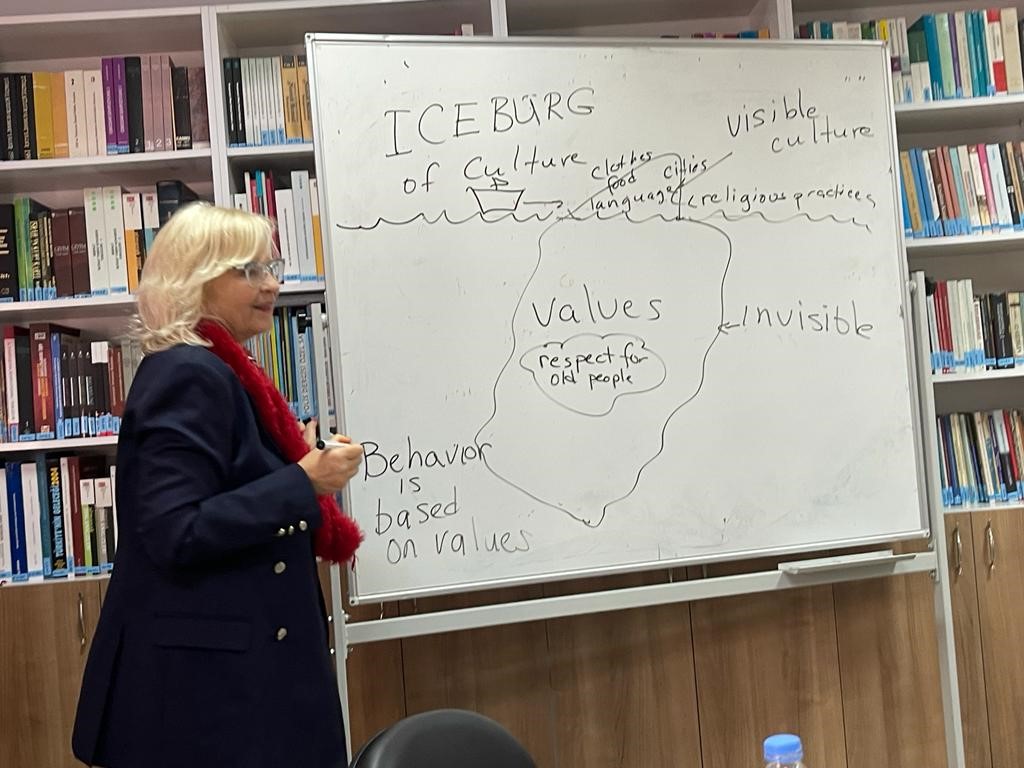 ICEBURG
of Culture
visible
culture
clothes
food
language
cities
religious practices
values
respect for
old people
Invisible
Behavior
is
based
on values